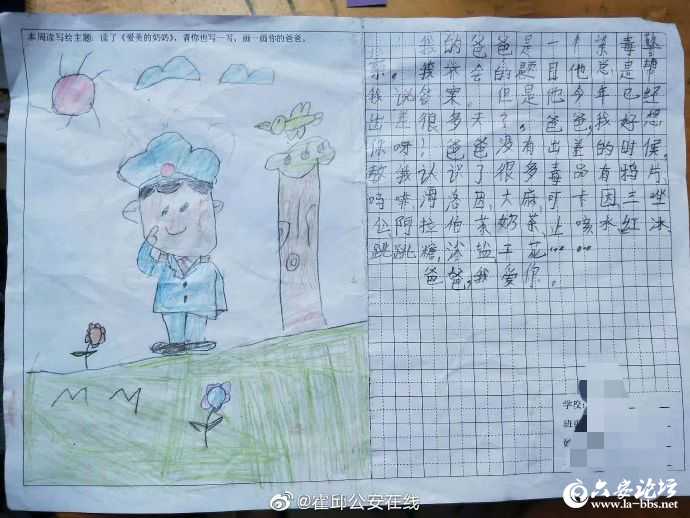 本周读写绘主题：读了《爱美的奶奶》，请你也写一写，画一画你的爸爸。
我的爸爸是一个禁毒警
察。我不会的题目他总是帮
我说答案。但是他今年已经
出差很多天了。爸爸，我好想
你呀！爸爸没有出差的时候，
教我认识了很多毒品有鸦片、
吗啡、海洛因、大麻、可卡因、三唑
仑、阿拉伯茶、奶茶、止咳水、红冰、
跳跳糖、浴盐、土花……
爸爸，我爱你。
学校：
@霍邱公安在线
六安论坛
www.la-bbs.net